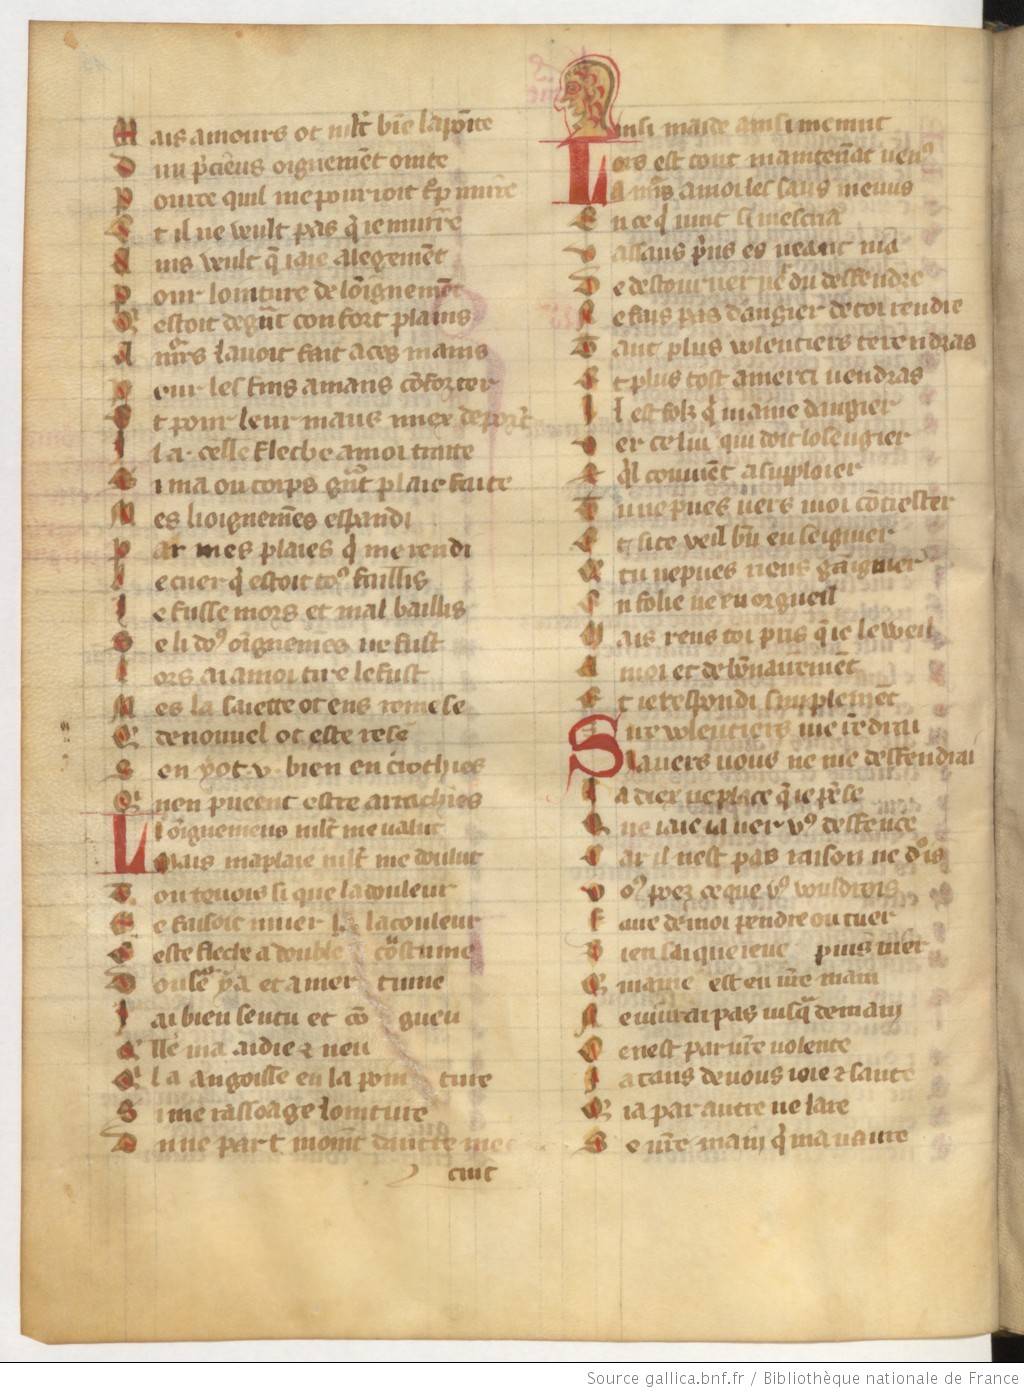 Mais amours ot mlt biē la poīte
Dun pcieus oignemēt ointe
Por ce quil me pourroit
Et il ne veult pas q̄ ie muire
Ains veult q̄ iaie alegement
Pour lointure de loignemēt
Q estoit de gnt confort plains
Amrs lauoit fait a ces mains
Pour les fins amans cōforter
Et pour leur maus miex deport
I la celle fleche a moi traite
Si ma ou corps gnt plaie faite
Mes li oignemēs espandi
Par mes plaies q̄ me rendi
Le cuer q̄ estoit to⁹ faillis
Ie fusse mors et mal baillis
Se li do⁹ oignemēs ne fust
Lors ai a moi tire le fust
Mes la saiette ot ens remese
Q de nouuel ot este rese
Sen y ot .v. bien enciochies
Q nen pueent estre arrachies
Li oignemens mlt me valut
Mais ma plaie mlt me doulut
Don tenois si que la douleur
Me faisoit muer la couleur
Ceste fleche a double coustume
Doulc̄ y a et amertume
Iai bien sentu et cōgneu
Qlle ma aidie ⁊ neu
Ql a angoisse en la pointure
Si me rassoage lointure
Dune part moint dautre me
cuit
Ainsi maide ainsi me nuit
Lors est tout maintenāt ven⁹
Amrs a moi les saus menus
En ce q̄ vint si mescria
Vassaus pris es neant ni a
De destourner ne du deffendre
Ne fais pas dangier de toi rendre
Tant plus volentiers te rendras
Et plus tost a merci vendras
Il est folz q̄ maine dangier
Ver celui qui doit losengier
Et ql conuiēt a supploier
Tu ne pues vers moi cōtrester
Et si te veil bn enseignier
Q tu ne pues riens gaignier
En folie ne en orgueil
Mais rens toi pris q̄ ie le weil
A moi et debonnairemēt
Et ie respondi simplemēt
Sire volentiers me rēdrai
Ia vers vous ne me deffendrai
Ia diex ne place q̄ ie pēse
Que iaie ia ver v⁹ deffence
Car il nest pas raison ne drois
Vo⁹ poez ce que v⁹ vouldrois
Faire de moi pendre ou tuer
Bien sai que ie ne puis muer
Q ma vie est en vrē main
Ne viurai pas iusq̄ demain
Se nest par vrē volente
Iatans de vous ioie ⁊ sante
Q ia par autre ne lare
Se vrē main q̄ ma naure
Source gallica.bnf.fr / Bibliothèque nationale de France